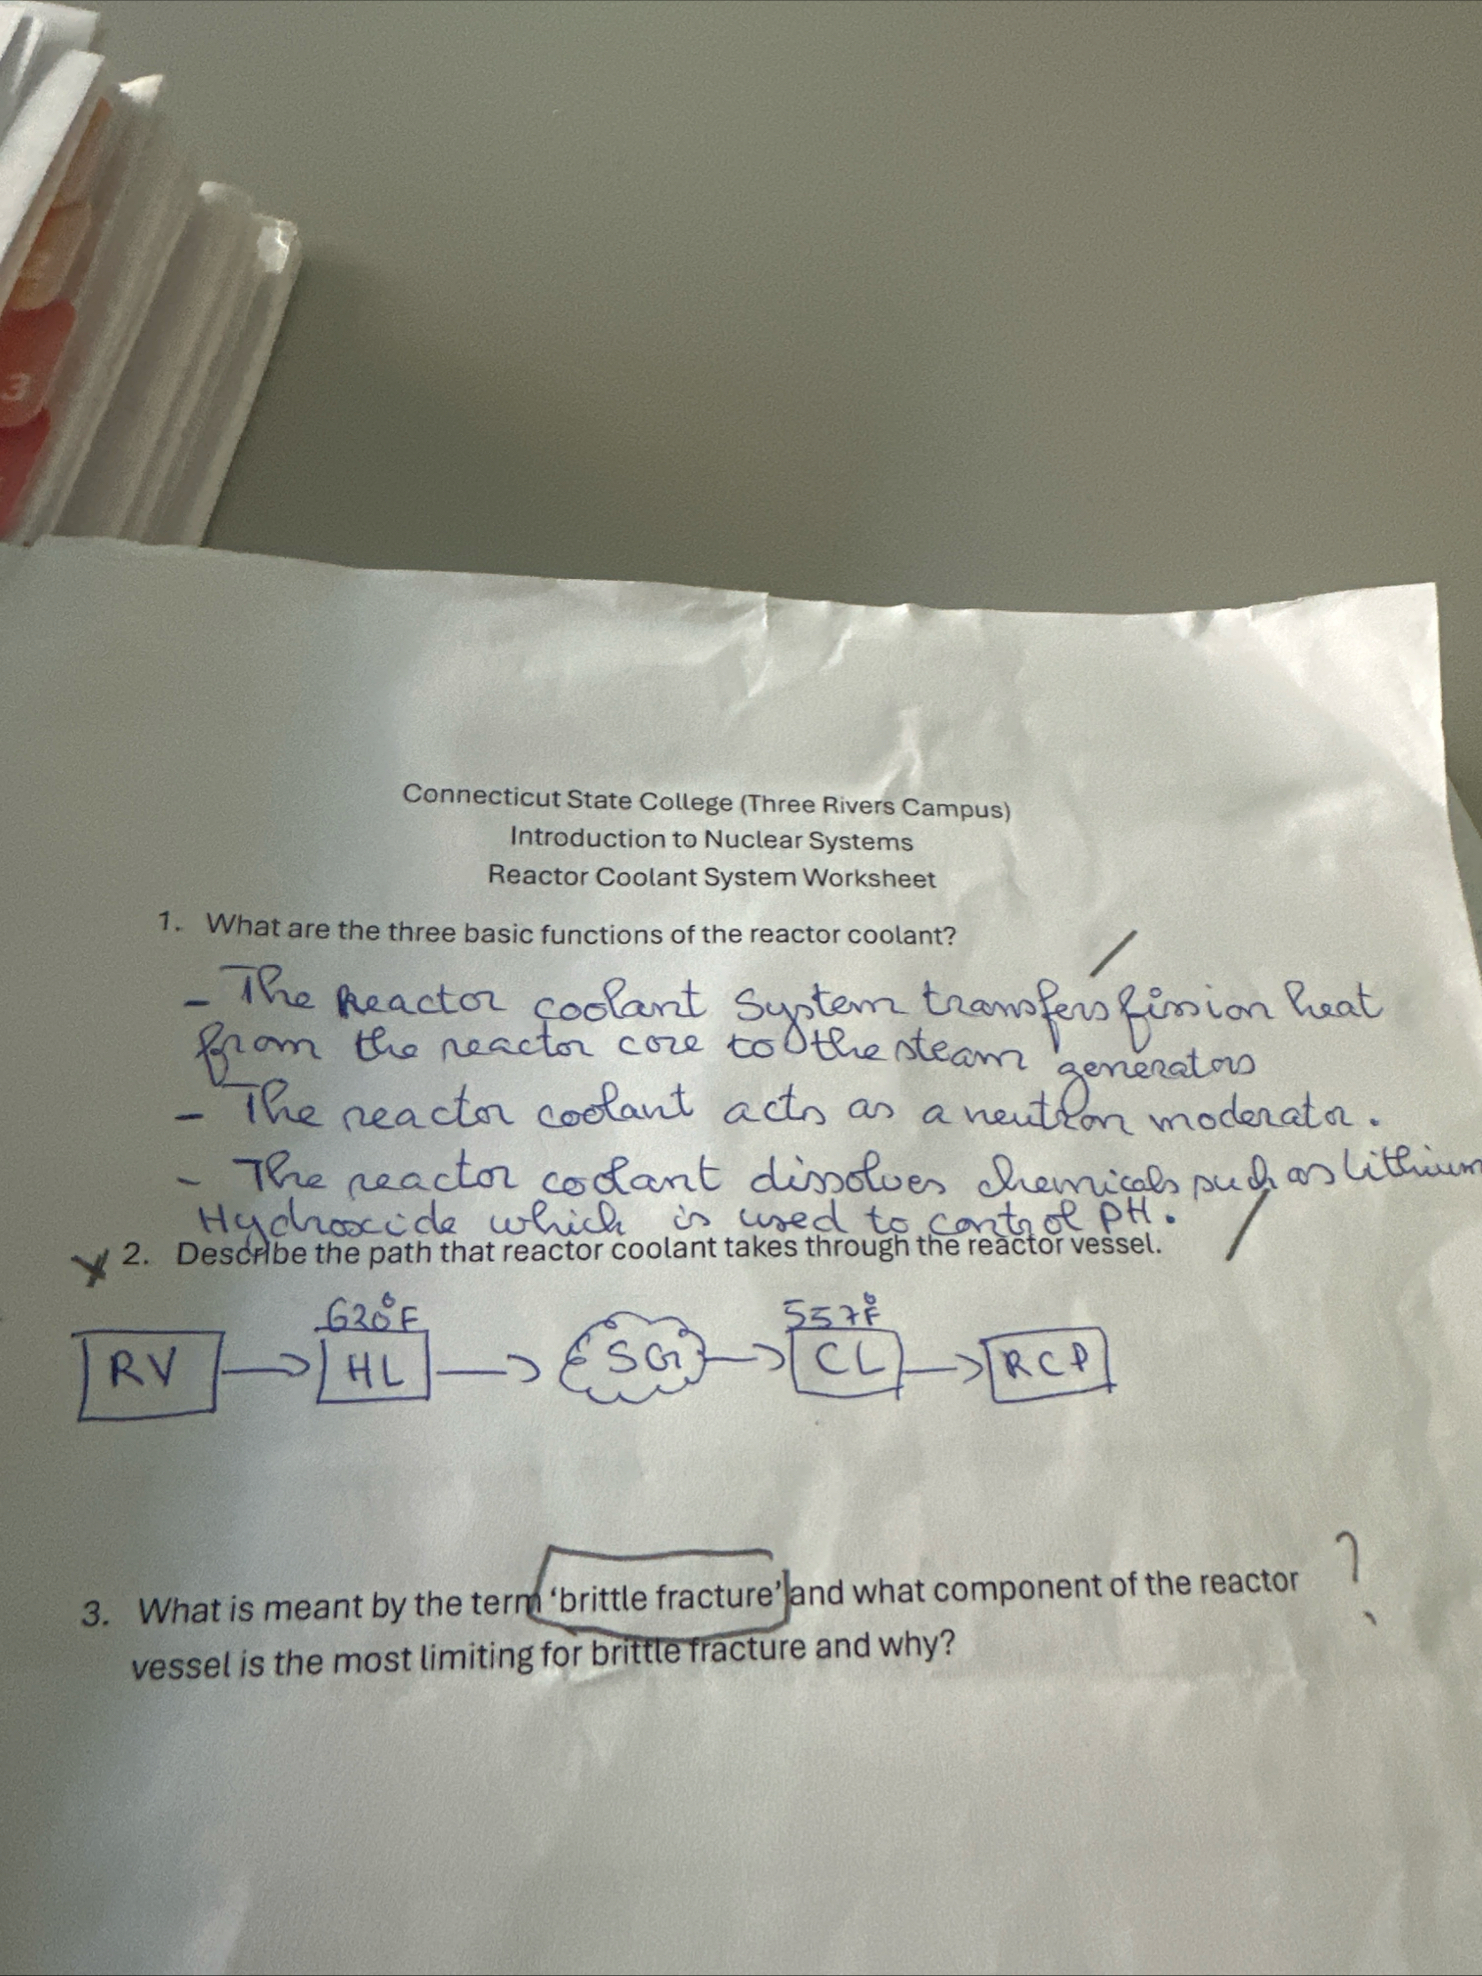 3
Connecticut State College (Three Rivers Campus)
Introduction to Nuclear Systems
Reactor Coolant System Worksheet
1. What are the three basic functions of the reactor coolant?
- The Reactor coolant System transfers fission heat
from the reactor core to the steam generators
- The reactor coolant acts as a neutron moderator.
- The reactor coolant dissolves chemicals such as lithium
Hydroxide which is used to control PH.
2. Describe the path that reactor coolant takes through the reactor vessel.
620°F 557°F
RV → HL → SG → CL → RCP
3. What is meant by the term 'brittle fracture' and what component of the reactor ?
vessel is the most limiting for brittle fracture and why?